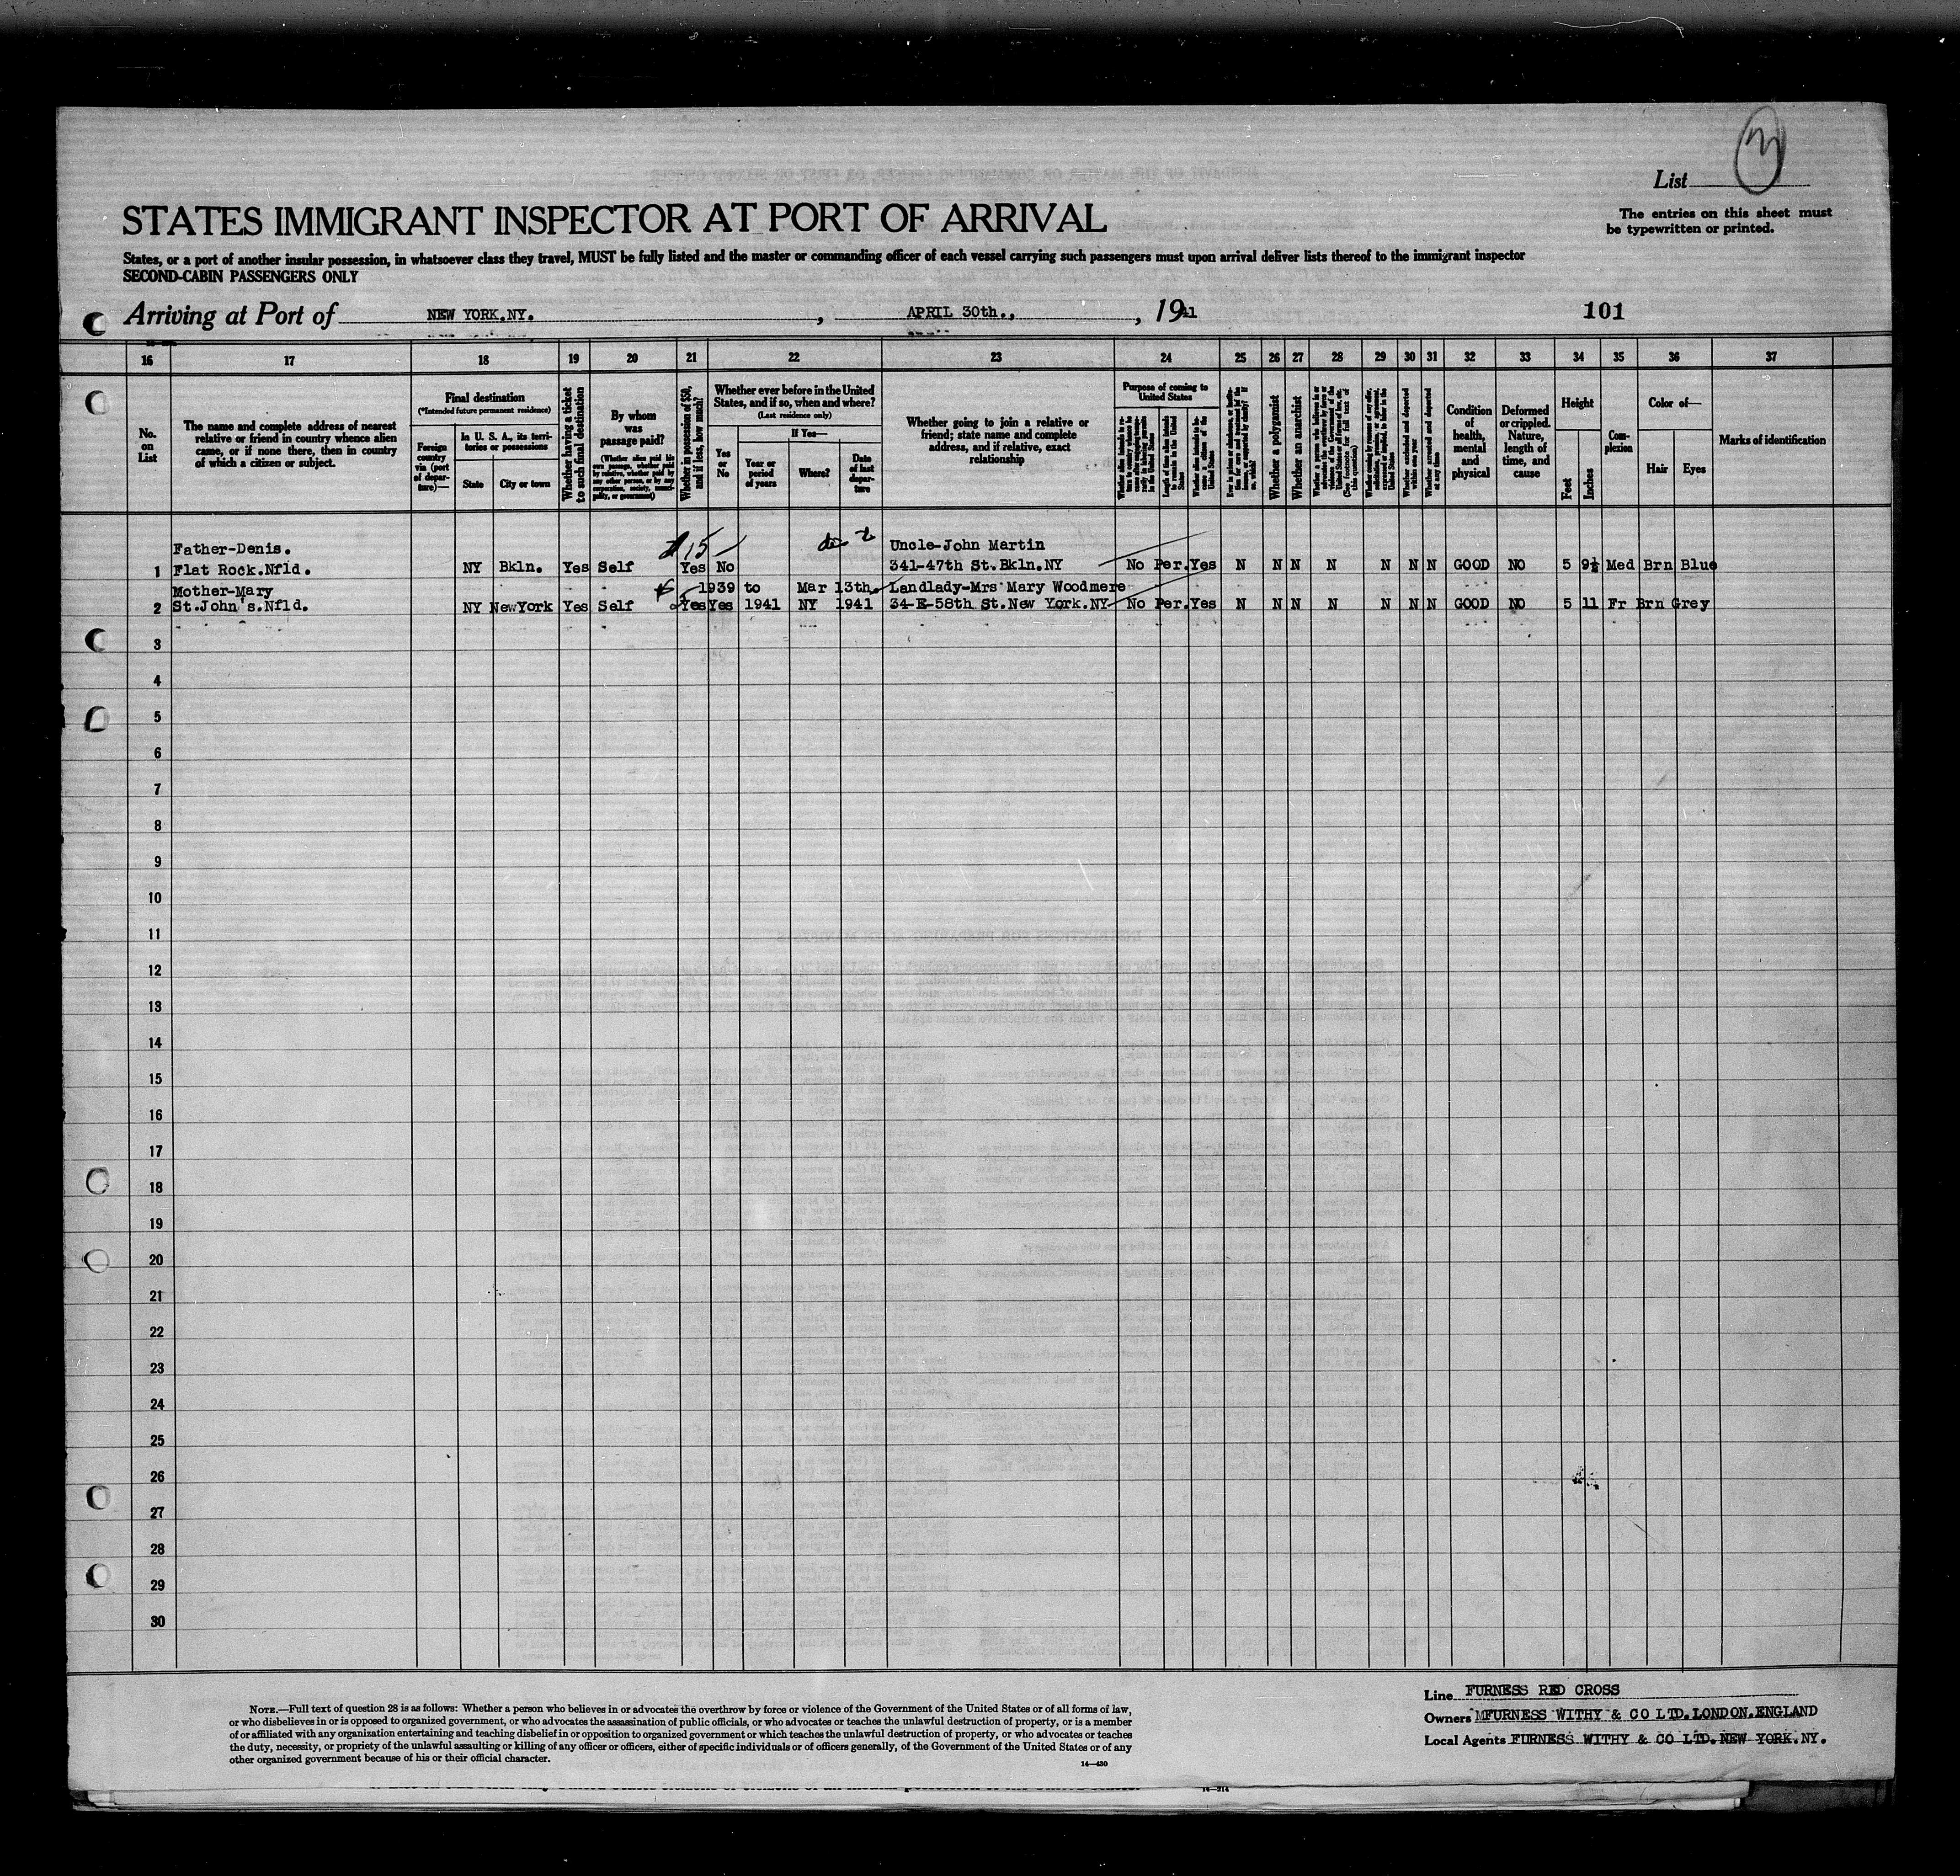 3
List
STATES IMMIGRANT INSPECTOR AT PORT OF ARRIVAL
The entries on this sheet must
be typewritten or printed.
States, or a port of another insular possession, in whatsoever class they travel, MUST be fully listed and the master or commanding officer of each vessel carrying such passengers must upon arrival deliver lists thereof to the immigrant inspector
SECOND-CABIN PASSENGERS ONLY
Arriving at Port of NEW YORK.NY. , APRIL 30th., , 1941 101
16 17 18 19 20 21 22 23 24 25 26 27 28 29 30 31 32 33 34 35 36 37
No.
on
List
The name and complete address of nearest
relative or friend in country whence alien
came, or if none there, then in country
of which a citizen or subject.
Final destination
(*Intended future permanent residence)
Foreign
country
via (port
of depar-
ture)—
In U. S. A., its terri-
tories or possessions
State
City or town
Whether having a ticket
to such final destination
By whom
was
passage paid?
(Whether alien paid his
own passage, whether paid
by relative, whether paid by
any other person, or by any
corporation, society, munici-
pality, or government)
Whether in possession of $50,
and if less, how much?
Whether ever before in the United
States, and if so, when and where?
(Last residence only)
Yes
or
No
If Yes—
Year or
period
of years
Where?
Date
of last
depar-
ture
Whether going to join a relative or
friend; state name and complete
address, and if relative, exact
relationship
Purpose of coming to
United States
Whether a polygamist
Whether an anarchist
Condition
of
health,
mental
and
physical
Deformed
or crippled.
Nature,
length of
time, and
cause
Height
Feet
Inches
Com-
plexion
Color of—
Hair
Eyes
Marks of identification
Father-Denis. 15 Uncle-John Martin
1 Flat Rock.Nfld. NY Bkln. Yes Self Yes No 341-47th St.Bkln.NY No Per. Yes N N N N N N N GOOD NO 5 9½ Med Brn Blue
Mother-Mary 1939 to Mar 13th. Landlady-Mrs Mary Woodmere
2 St.John's.Nfld. NY NewYork Yes Self Yes Yes 1941 NY 1941 34-E-58th St.New York.NY No Per. Yes N N N N N N N GOOD NO 5 11 Fr Brn Grey
3
4
5
6
7
8
9
10
11
12
13
14
15
16
17
18
19
20
21
22
23
24
25
26
27
28
29
30
NOTE.—Full text of question 28 is as follows: Whether a person who believes in or advocates the overthrow by force or violence of the Government of the United States or of all forms of law,
or who disbelieves in or is opposed to organized government, or who advocates the assassination of public officials, or who advocates or teaches the unlawful destruction of property, or is a member
of or affiliated with any organization entertaining and teaching disbelief in or opposition to organized government or which teaches the unlawful destruction of property, or who advocates or teaches
the duty, necessity, or propriety of the unlawful assaulting or killing of any officer or officers, either of specific individuals or of officers generally, of the Government of the United States or of any
other organized government because of his or their official character.
14—430
Line FURNESS RED CROSS
Owners MFURNESS WITHY & CO LTD.LONDON.ENGLAND
Local Agents FURNESS WITHY & CO LTD.NEW YORK.NY.
14—214